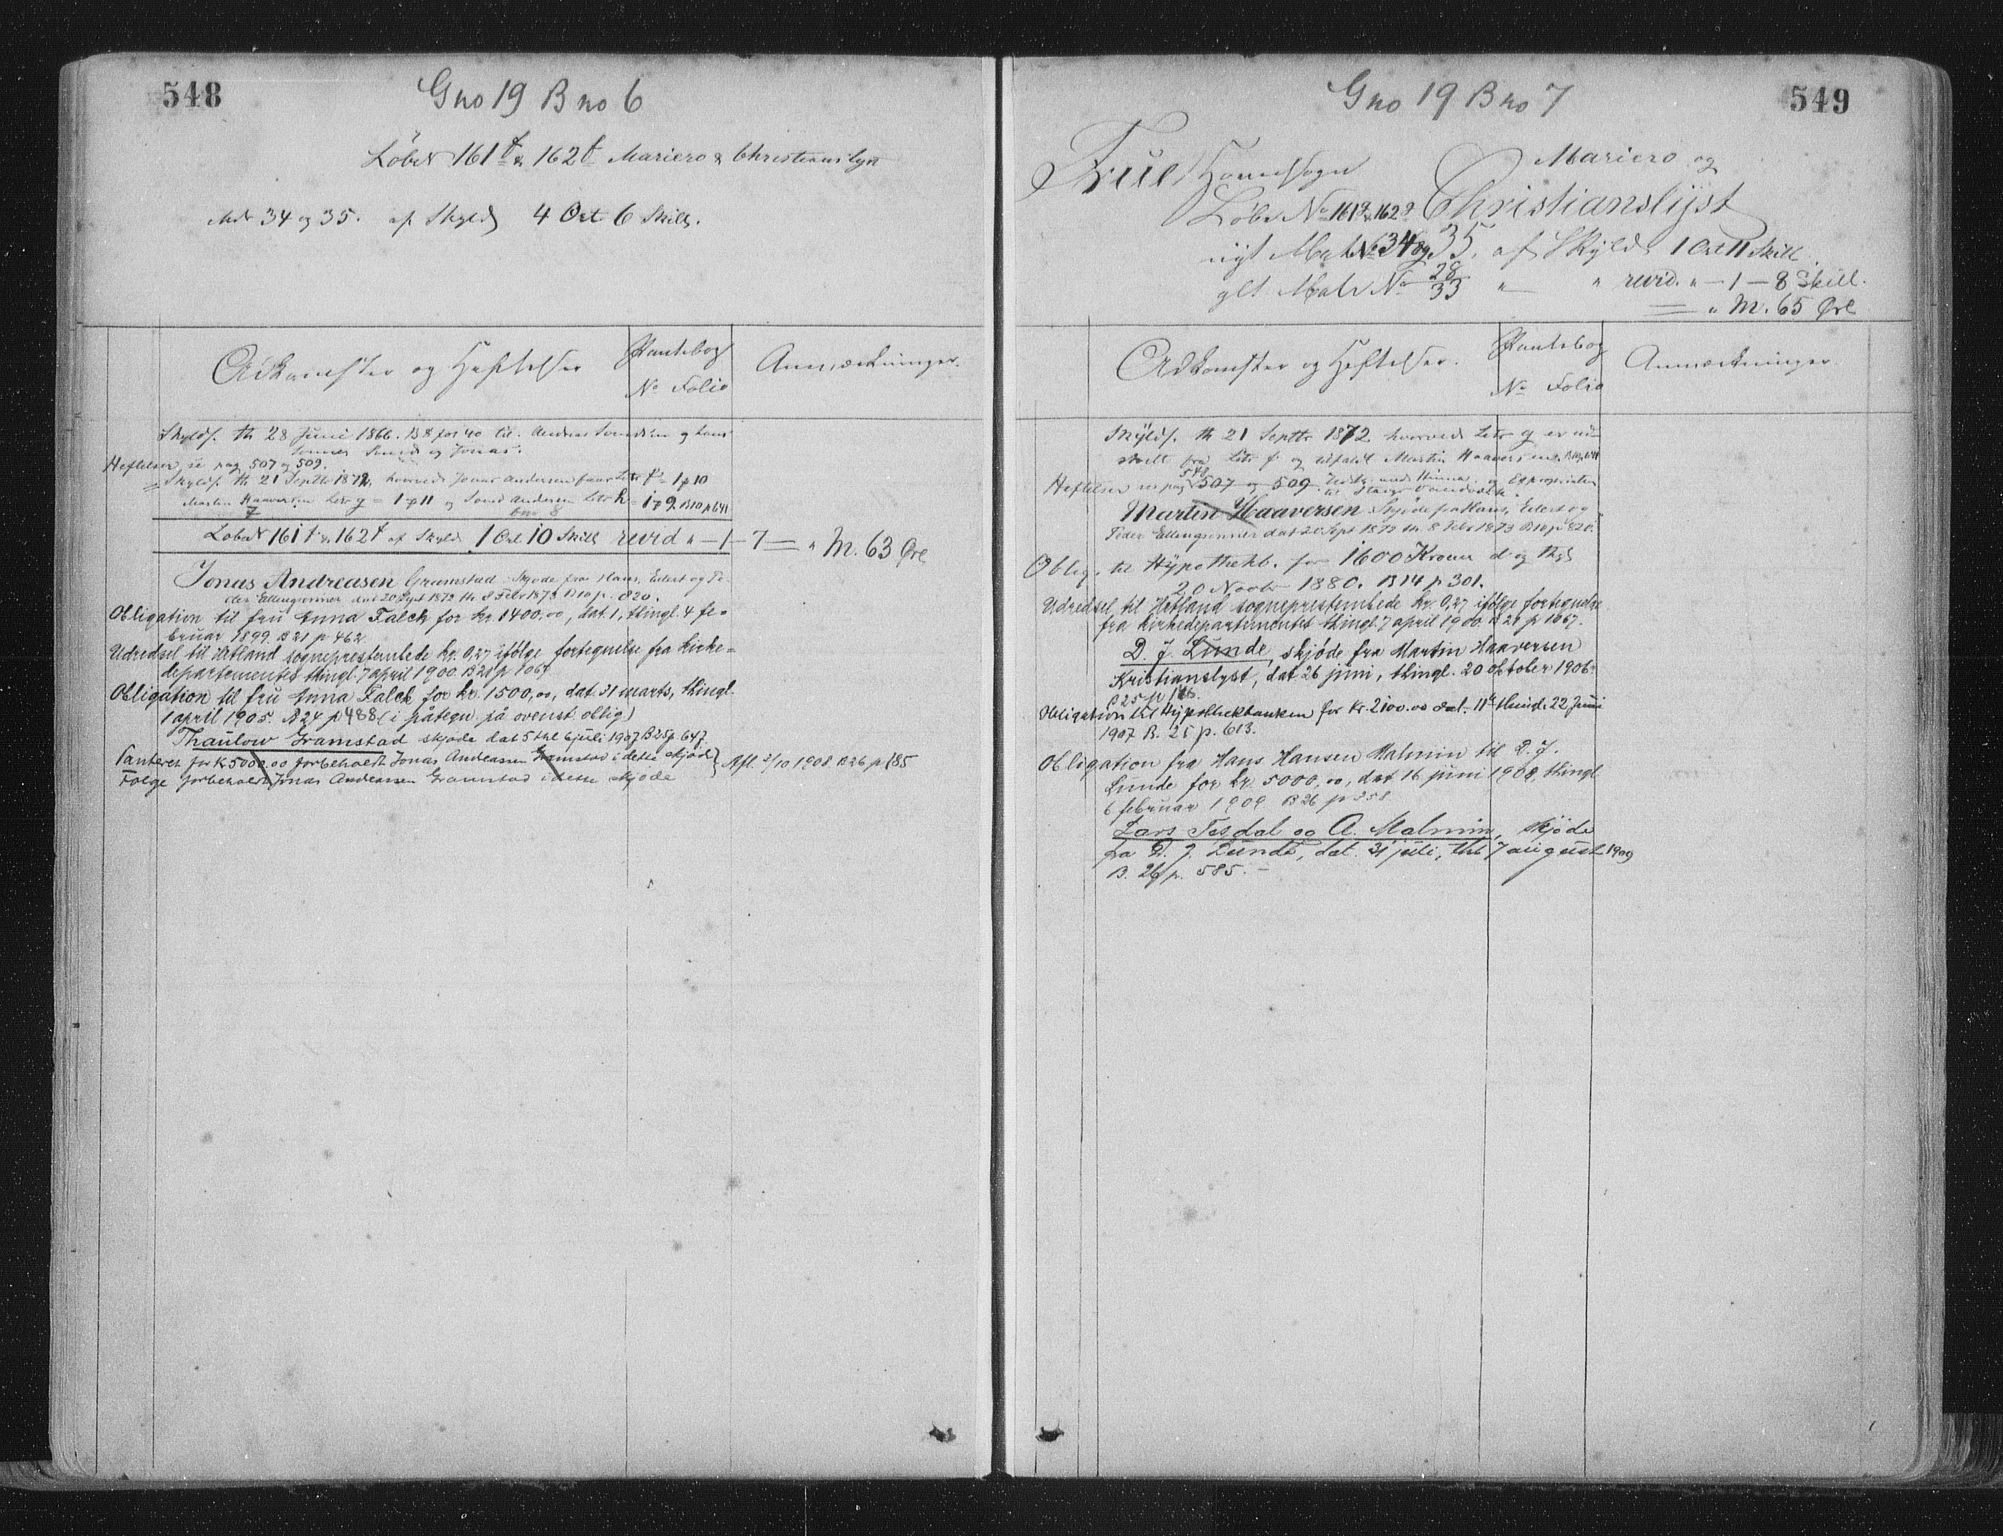 548
Gno 19 Bno 6
Løbe N 161f & 162f Mariero & Christianslyst
MN 34 og 35. af Skyld 4 Ort 6 Skill.
Adkomster og Heftelser
Pantebog
No Folio
Anmærkninger.
Skylds. th 28 Juni 1866. B 8 for 40 til Andreas og hans
Sønner og Jonas.
Heftelser, se pag 507 og 509.
Skylds. th 21 Septbr 1872, hvorved Jonas Andersen faar Litr f = 1 β 10
Martin Haaversen Litr g = 1 β 11 og Andersen Litr h = 1 β 9. B10 p 641
7 bno 8
Løbe N 161f & 162f af Skyld 1 Ort 10 Skill revid " - 1 - 7 = " M. 63 Øre
Jonas Andreasen Gramstad Skjøde fra Hans, Eilert og Pe-
der Ellingsønner dat 20 Sept 1872 th. 8 Febr 1873 B10 p. 820.
Obligation til fru Anna Falck for kr. 1400,00, dat. 1, thingl. 4 fe-
bruar 1899. B21 p 462
Udredsel til Hetland sogneprestembede kr. 0,27 ifølge fortegnelse fra kirke-
departementet thingl. 7 april 1900. B21 p 1067
Obligation til fru Anna Falck for kr. 1500,00, dat. 31 marts, thingl.
1 april 1905. B 24 p 488 (i påtegn. på ovenst. oblig.)
Thaulow Gramstad skjøde dat 5 thl 6 juli 1907 B25 p 647
Panteret for K 5000.00 forbeholdt Jonas Andreasen Gramstad i dette skjøde } Afl. 2/10 1908 B26 p 185
Følge forbeholdt Jonas Andreasen Gramstad i dette skjøde
549
Gno 19 Bno 7
Frue Hovedsogn
Mariero og
Løbe No 161g & 162g Christianslyst
nyt Matr No 34 og 35. af Skyld 1 Ort 11 Skill.
glt. Matr No 28/33 " — " revid. " - 1 - 8 Skill.
= " M. 65 Øre
Adkomster og Heftelser.
Pantebog
No Folio
Anmærkninger.
Skylds. th 21 Septbr 1872. hvorved Litr g er ud-
skilt fra Litr f og tilfaldt Martin Haaversen. B10 p 641
548
Heftelser se pag 507 og 509. Hinna og Expropriation
til
Martin Haaversen Skjøde fra Hans, Eilert og
Peder Ellingsønner dat 20 Sept 1872 th. 8 Febr 1873 B10 p 820.
Oblig. til Hypothekb. for 1600 Kroner d og thgl
20 Novbr 1880. B14 p 301.
Udredsel til Hetland sogneprestembede kr. 0,27 ifølge fortegnelse
fra kirkedepartementet thingl. 7 april 1900. B 21 p 1067.
D. J. Lunde, skjøde fra Martin Haaversen
Kristianslyst, dat 26 juni, thingl. 20 oktober 1906.
B 25 p
Obligation til Hypothekbanken for Kr. 2100.00 dat. 11te thind. 22 Juni
1907 B. 25 p. 613.
Obligation fra Hans Hansen Malmin til D. J.
Lunde for kr. 5000,00, dat 16 juni 1908, thingl.
6 februar 1909 B 26 p 358
Lars Tesdal og A. Malmin, skjøde
fra D. J. Lunde, dat. 31 juli, thl. 7 august 1909
B. 26 p. 585. -